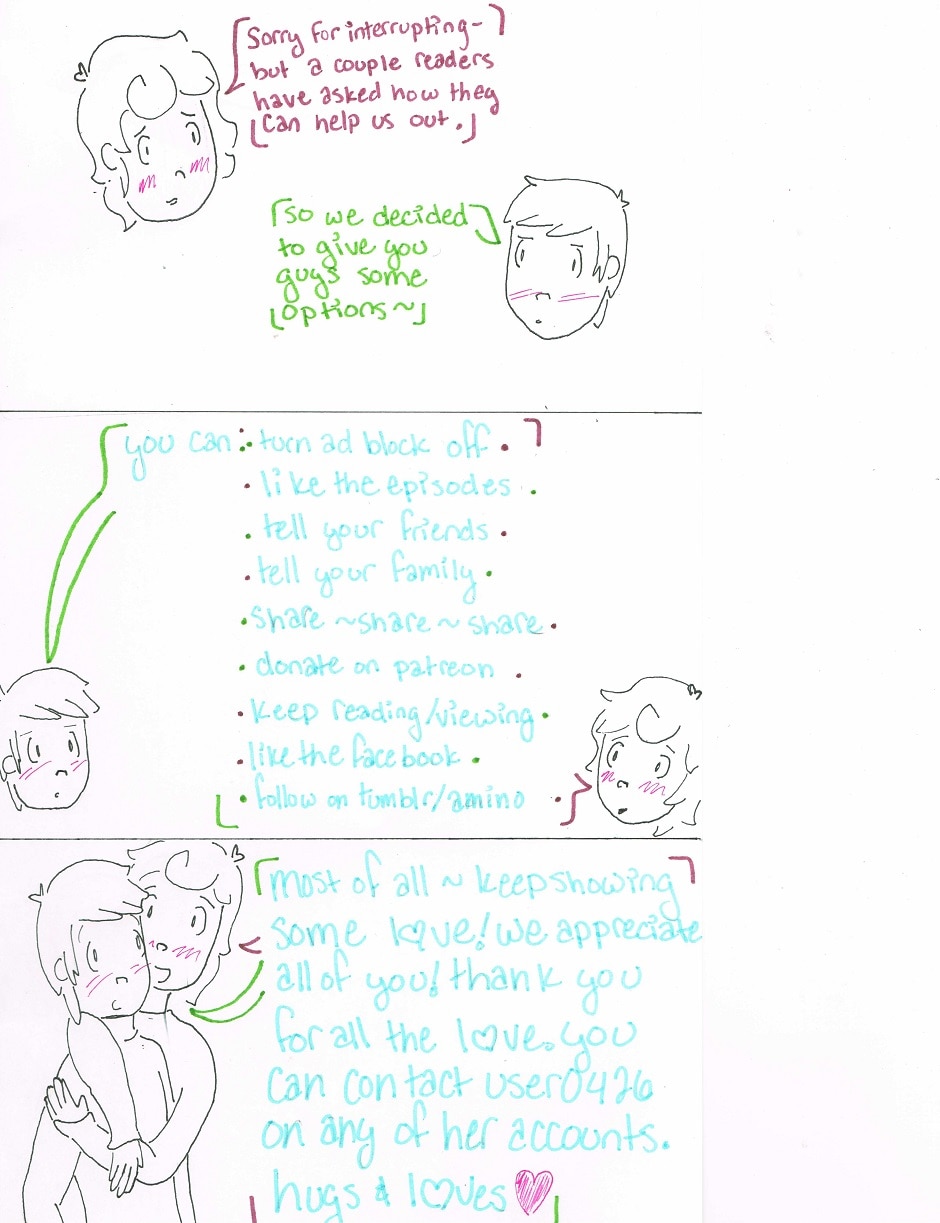 Sorry for interrupting-
but a couple readers
have asked how they
can help us out.
so we decided
to give you
guys some
options~
you can: • turn ad block off •
• like the episodes •
• tell your friends •
• tell your family •
• share ~ share ~ share •
• donate on patreon •
• keep reading/viewing •
• like the facebook •
• follow on tumblr/amino •
most of all ~ keep showing
some l♡ve! we appreciate
all of you! thank you
for all the l♡ve. you
can contact user0426
on any of her accounts.
hugs & l♡ves ♥